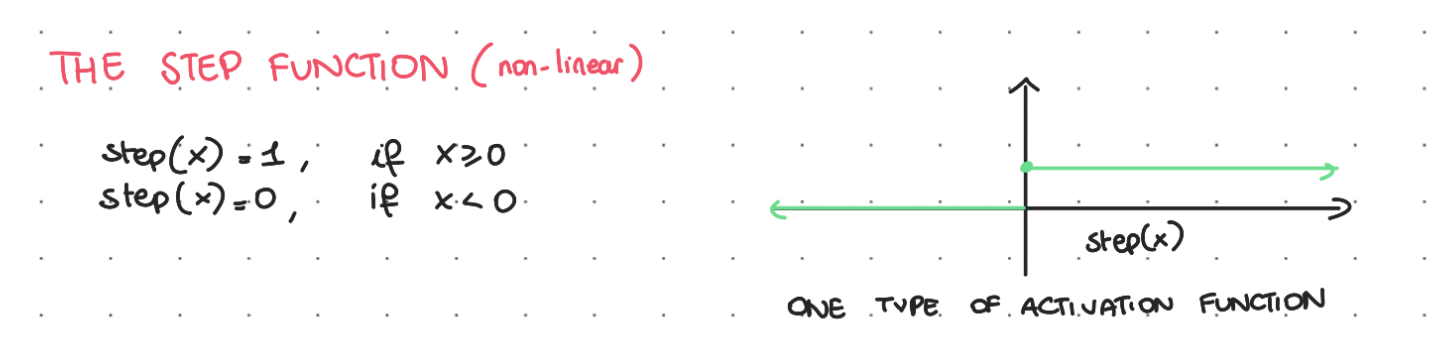 THE STEP FUNCTION (non-linear)
step(x) = 1, if x ≥ 0
step(x) = 0, if x < 0
step(x)
ONE TYPE OF ACTIVATION FUNCTION